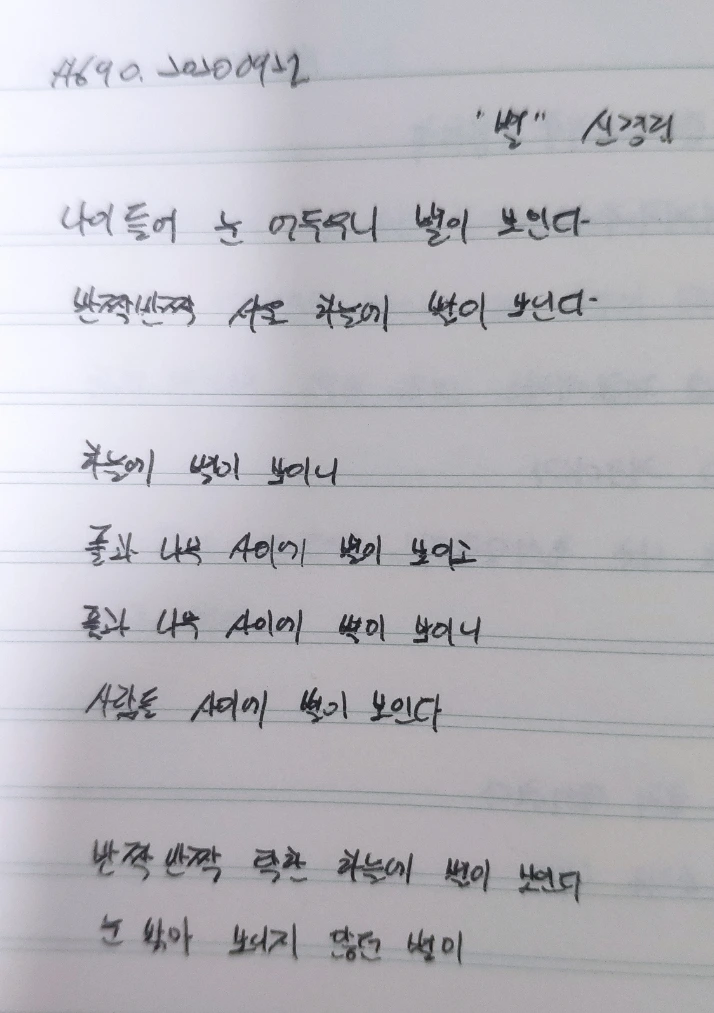 A690. 20200912
"별" 신경림
나이들어 눈 어두우니 별이 보인다
반짝반짝 서울 하늘에 별이 보인다
하늘에 별이 보이니
풀과 나무 사이에 별이 보이고
풀과 나무 사이에 별이 보이니
사람들 사이에 별이 보인다
반짝반짝 탁한 하늘에 별이 보인다
눈 밝아 보이지 않던 별이